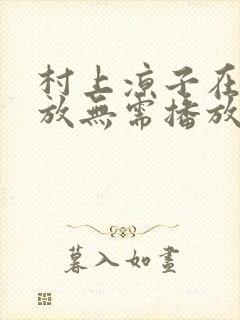 村上凉子在
放無需播放
暮入如畫